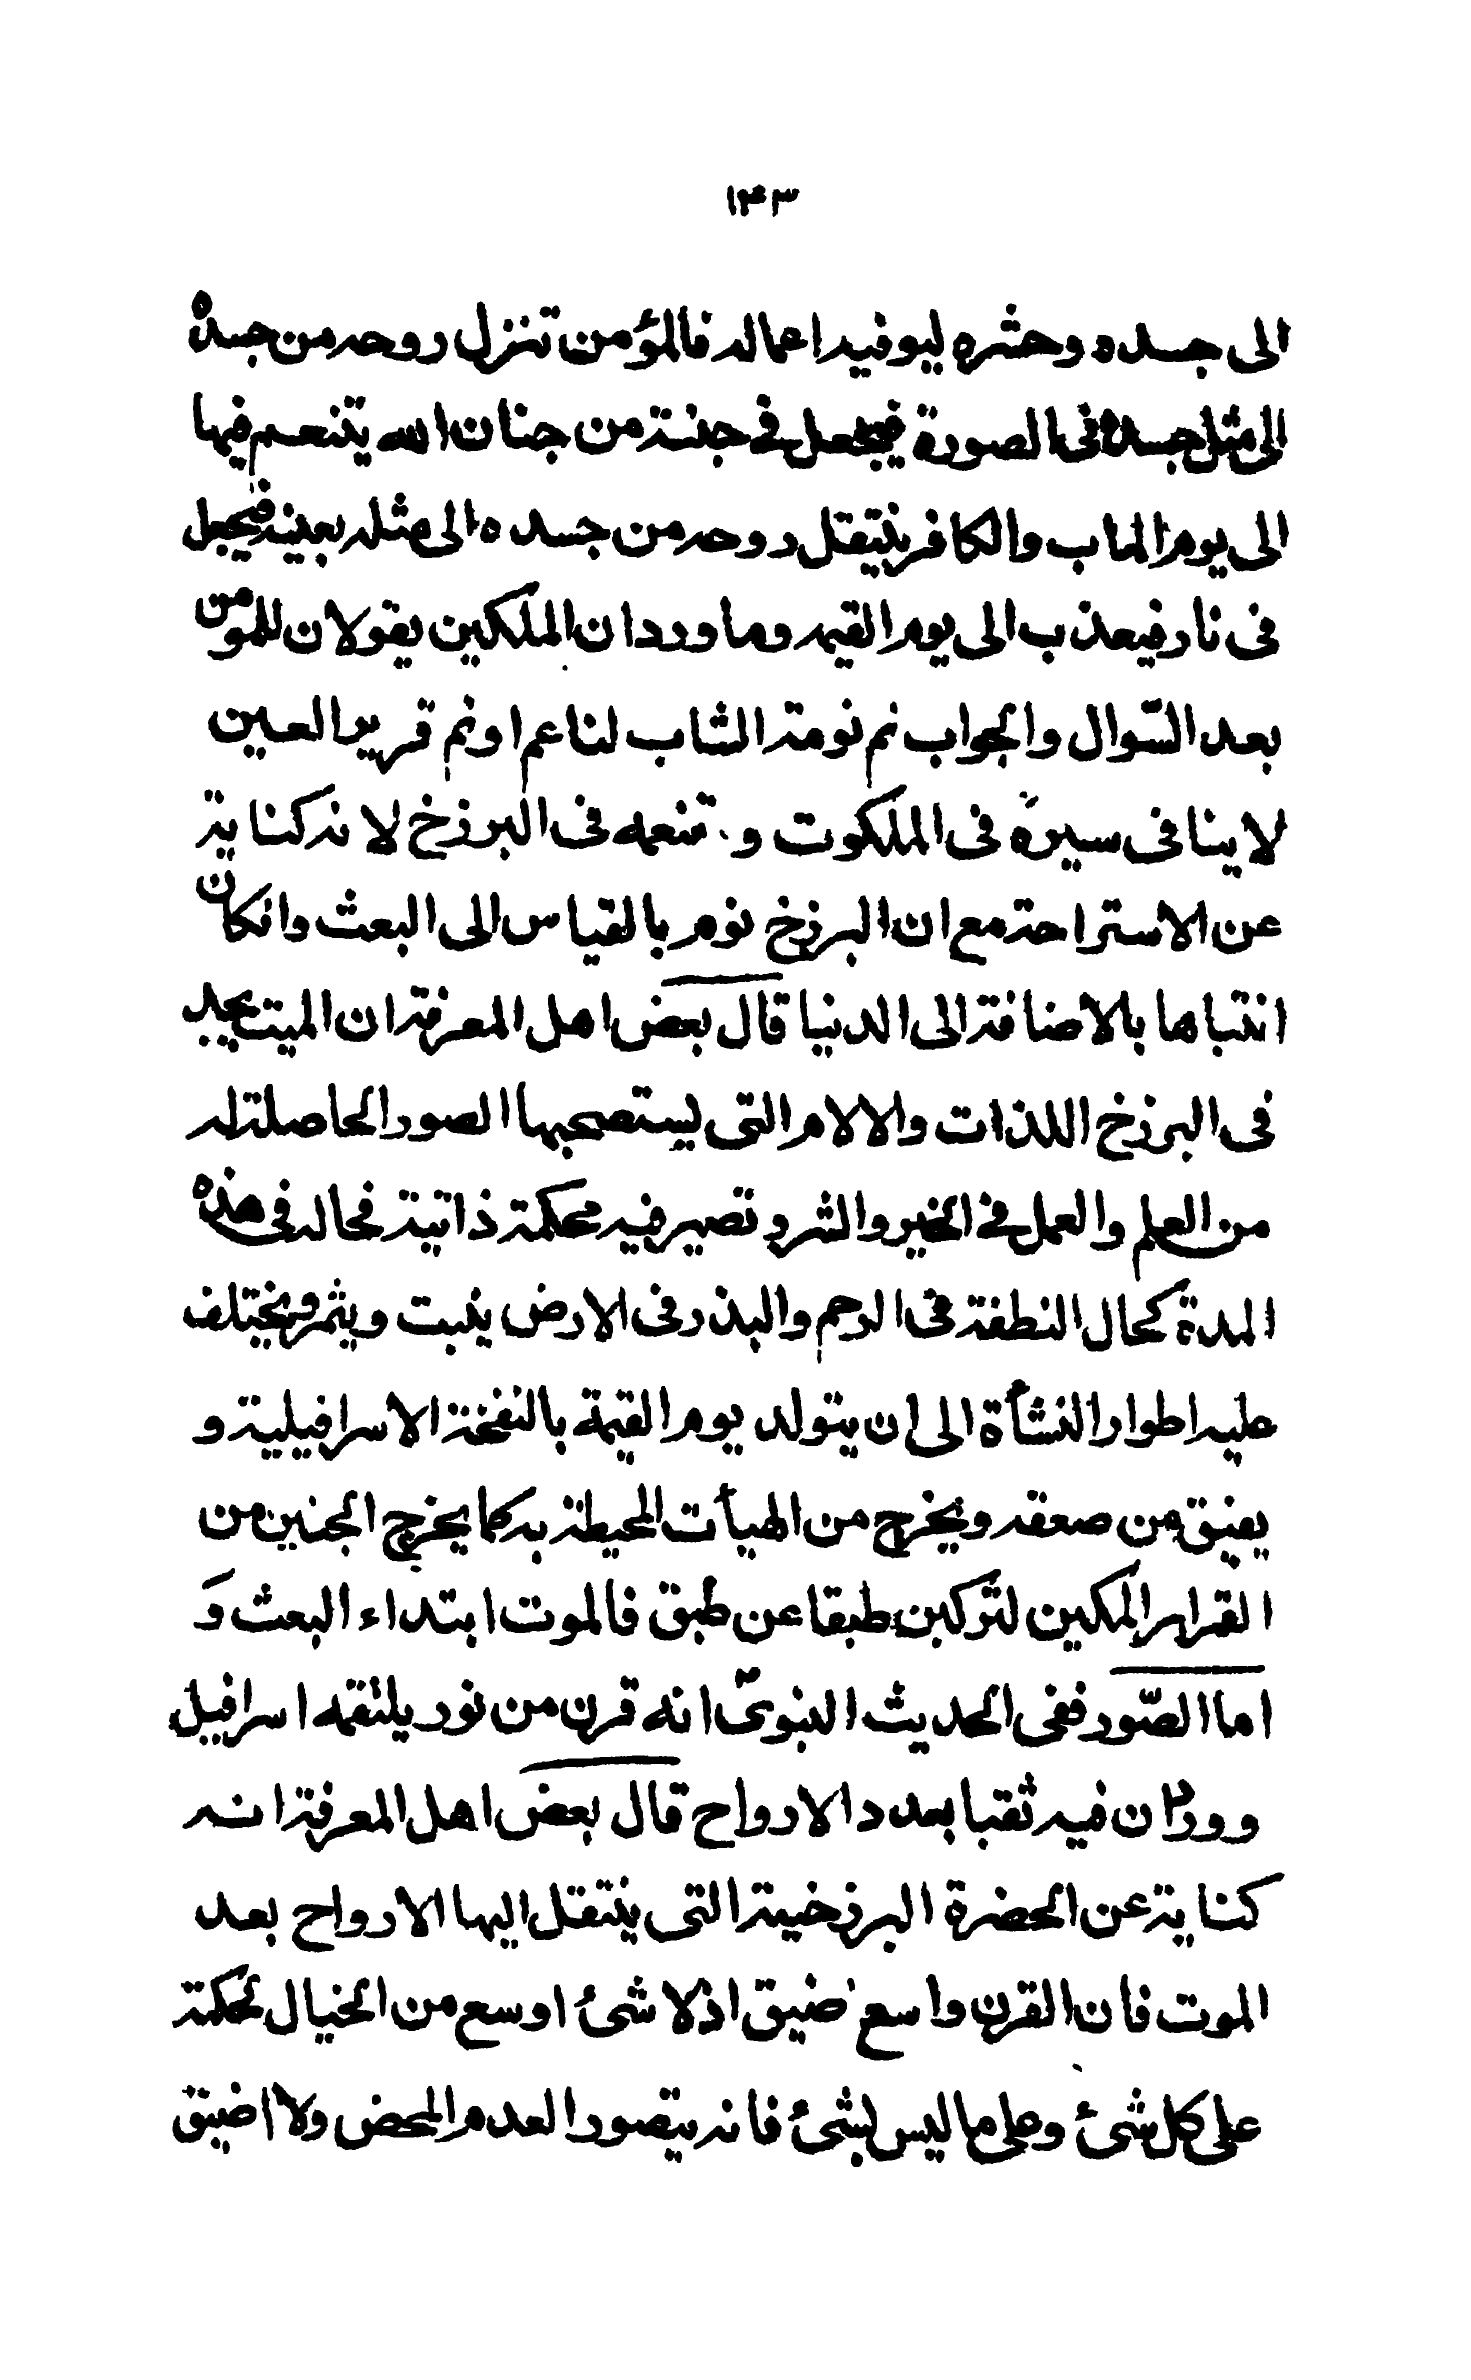 ١٤٣
الى جسده وحشره ليوفيه اعماله فالمؤمن تنزل روحه من جسده
الى مثل جسده فى الصورة فيجعل في جنة من جنان الله يتنعم فيها
الى يوم الماب والكافر ينتقل روحه من جسده الى مثله بعينه فيجعل
فى نار فيعذب الى يوم القيمه وما ورد ان الملكين يقولان للمومن
بعد السّوال والجواب نم نومة الشاب لناعم او نم قرير العين
لاينافى سيره فى الملكوت و تنعمه فى البرزخ لانه كناية
عن الاستراحة مع ان البرزخ نوم بالقياس الى البعث وانكان
انتباها بالاضافة الى الدنيا قال بعض اهل المعرفة ان الميت يجد
فى البرزخ اللذات والالام التى يستصحبها الصور الحاصلة له
من العلم والعمل في الخير والشر و تصير فيه محكمة ذاتية فحاله فى هذه
المدة كحال النطفة فى الرحم والبذر فى الارض ينبت ويثمر ويختلف
عليه اطوار النشأة الى ان يتولد يوم القيمة بالنفخة الاسرافيلية و
يفيق من صعقه ويخرج من الهيأت المحيطة به كما يخرج الجنين من
القرار المكين لتركبن طبقا عن طبق فالموت ابتداء البعث وَ
اما الصّور ففى الحديث النبوىّ انه قرن من نور يلتقمه اسرافيل
وورد ان فيه ثقبا بعدد الارواح قال بعض اهل المعرفة انه
كناية عن الحضرة البرزخية التى ينتقل اليها الارواح بعد
الموت فان القرن واسع ضيق اذ لا شئ اوسع من الخيال لحكمة
على كل شئ وعلى ما ليس بشئ فانه يتصور العدم المحض ولا اضيق